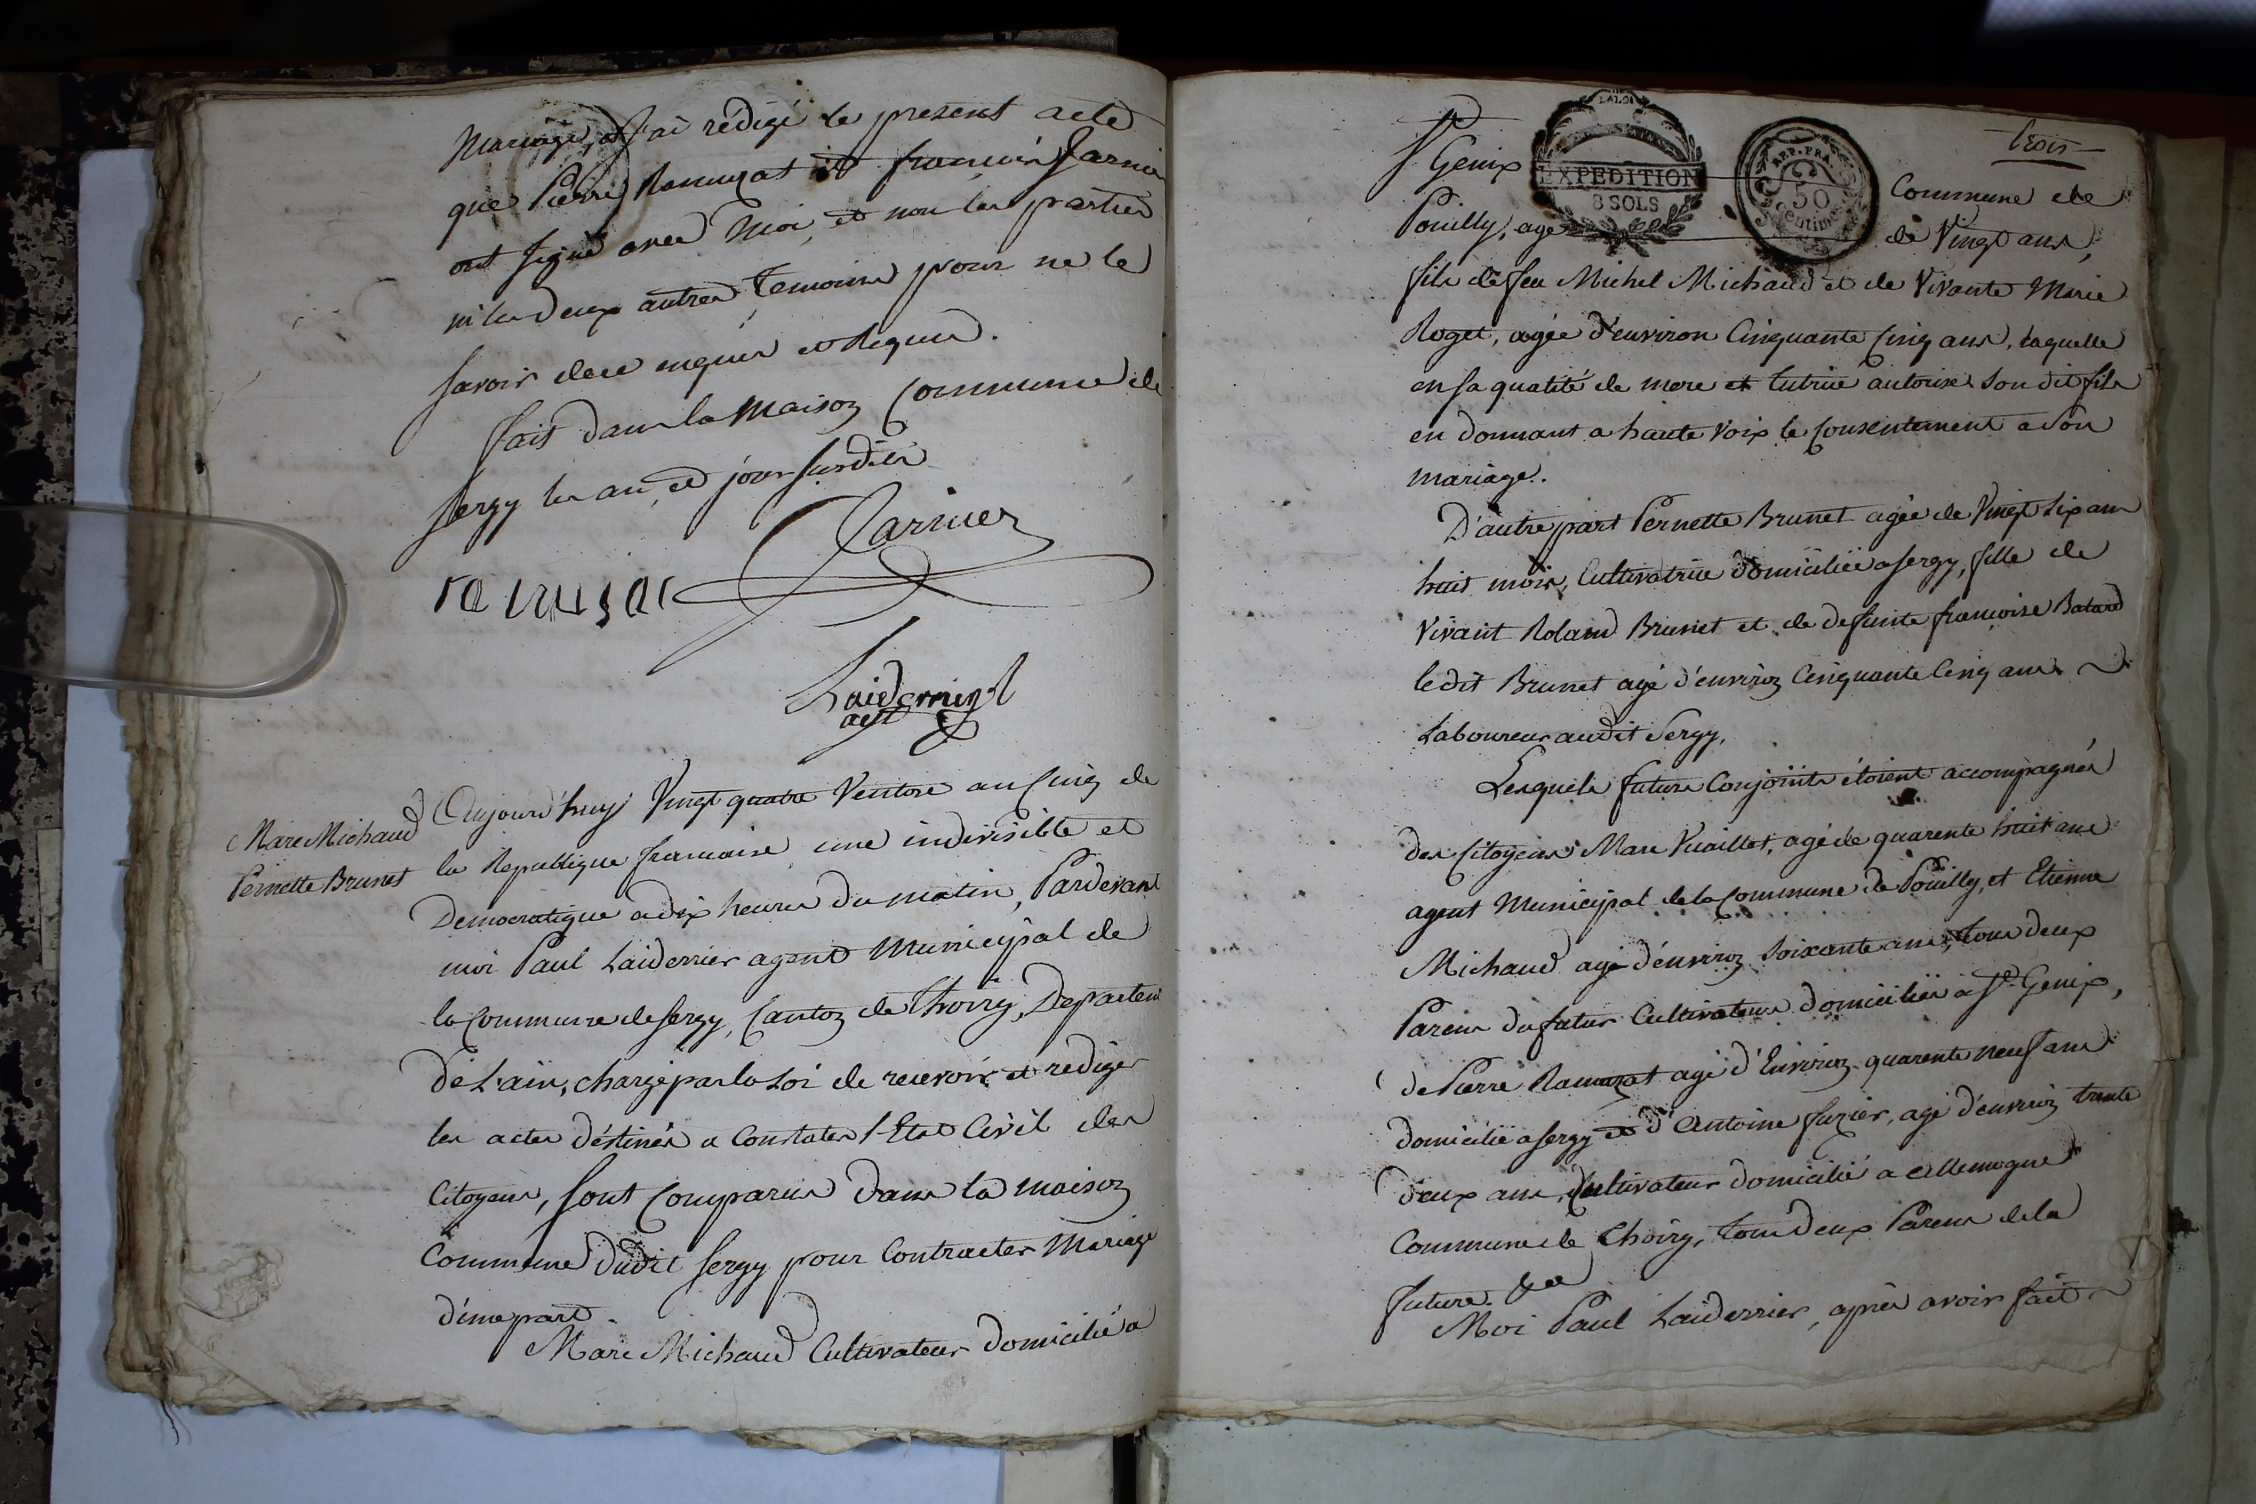 Mariage, et J'ai rédigé le present acte
que Pierre Ramuzat et françois Jarnier
ont signé avec Moi, et non les parties
ni les deux autres Temoins pour ne le
savoir de ce enquis et Requis.
fait dans la Maison Commune de
sergy les an, et jour susdits
Jarnier
ramusat
Laiderrier
agt
Marc Michaud
Pernette Brunet
Aujourd'huy Vingt quatre Ventose an Cinq de
la Republique francaise une indivisible et
Democratique a dix heures du matin, Pardevant
moi Paul Laiderrier agent Municipal de
la Commune de sergy, Canton de Thoiry, Departem
De L'ain, chargé par la Loi de recevoir et rediger
les actes déstinés a Constater l'Etat Civil des
Citoyens, sont Comparus dans la maison
Commune dudit sergy pour Contracter Mariage
d'une part.
Marc Michaud Cultivateur domicilié a
trois
LA LOI
EXPEDITION
8 SOLS
REP. FRA.
50
Centimes
St Genix Commune de
Pouilly, agé de Vingt ans,
fils de feu Michel Michaud et de Vivante Marie
Roget, agée d'environ Cinquante Cinq ans, laquelle
en sa qualité de mere et tutrice autorise son dit fils
en donnant a haute voix le Consentement a son
mariage.
D'autre part Pernette Brunet agée de Vingt six ans
huit mois, Cultivatrice domiciliée a sergy, fille de
Vivant Roland Brunet et de defunte francoise Batard
le dit Brunet agé d'environ Cinquante Cinq ans
Laboureur audit Sergy,
Lesquels futurs Conjoints étoient accompagnés
des Citoyens Marc Vuaillet, agé de quarente huit ans
agent Municipal de la Commune de Pouilly, et Etienne
Michaud agé d'environ soixante ans, tous deux
Parens du futur Cultivateurs domiciliés à St Genix,
de Pierre Ramuzat agé d'Environ quarente neuf ans
domicilié a sergy et d'Antoine fuzier, agé d'environ trente
deux ans, Cultivateur domicilié a allemogne
Commune de Thoiry, tous deux Parens de la
future.
Moi Paul Laiderrier, après avoir fait